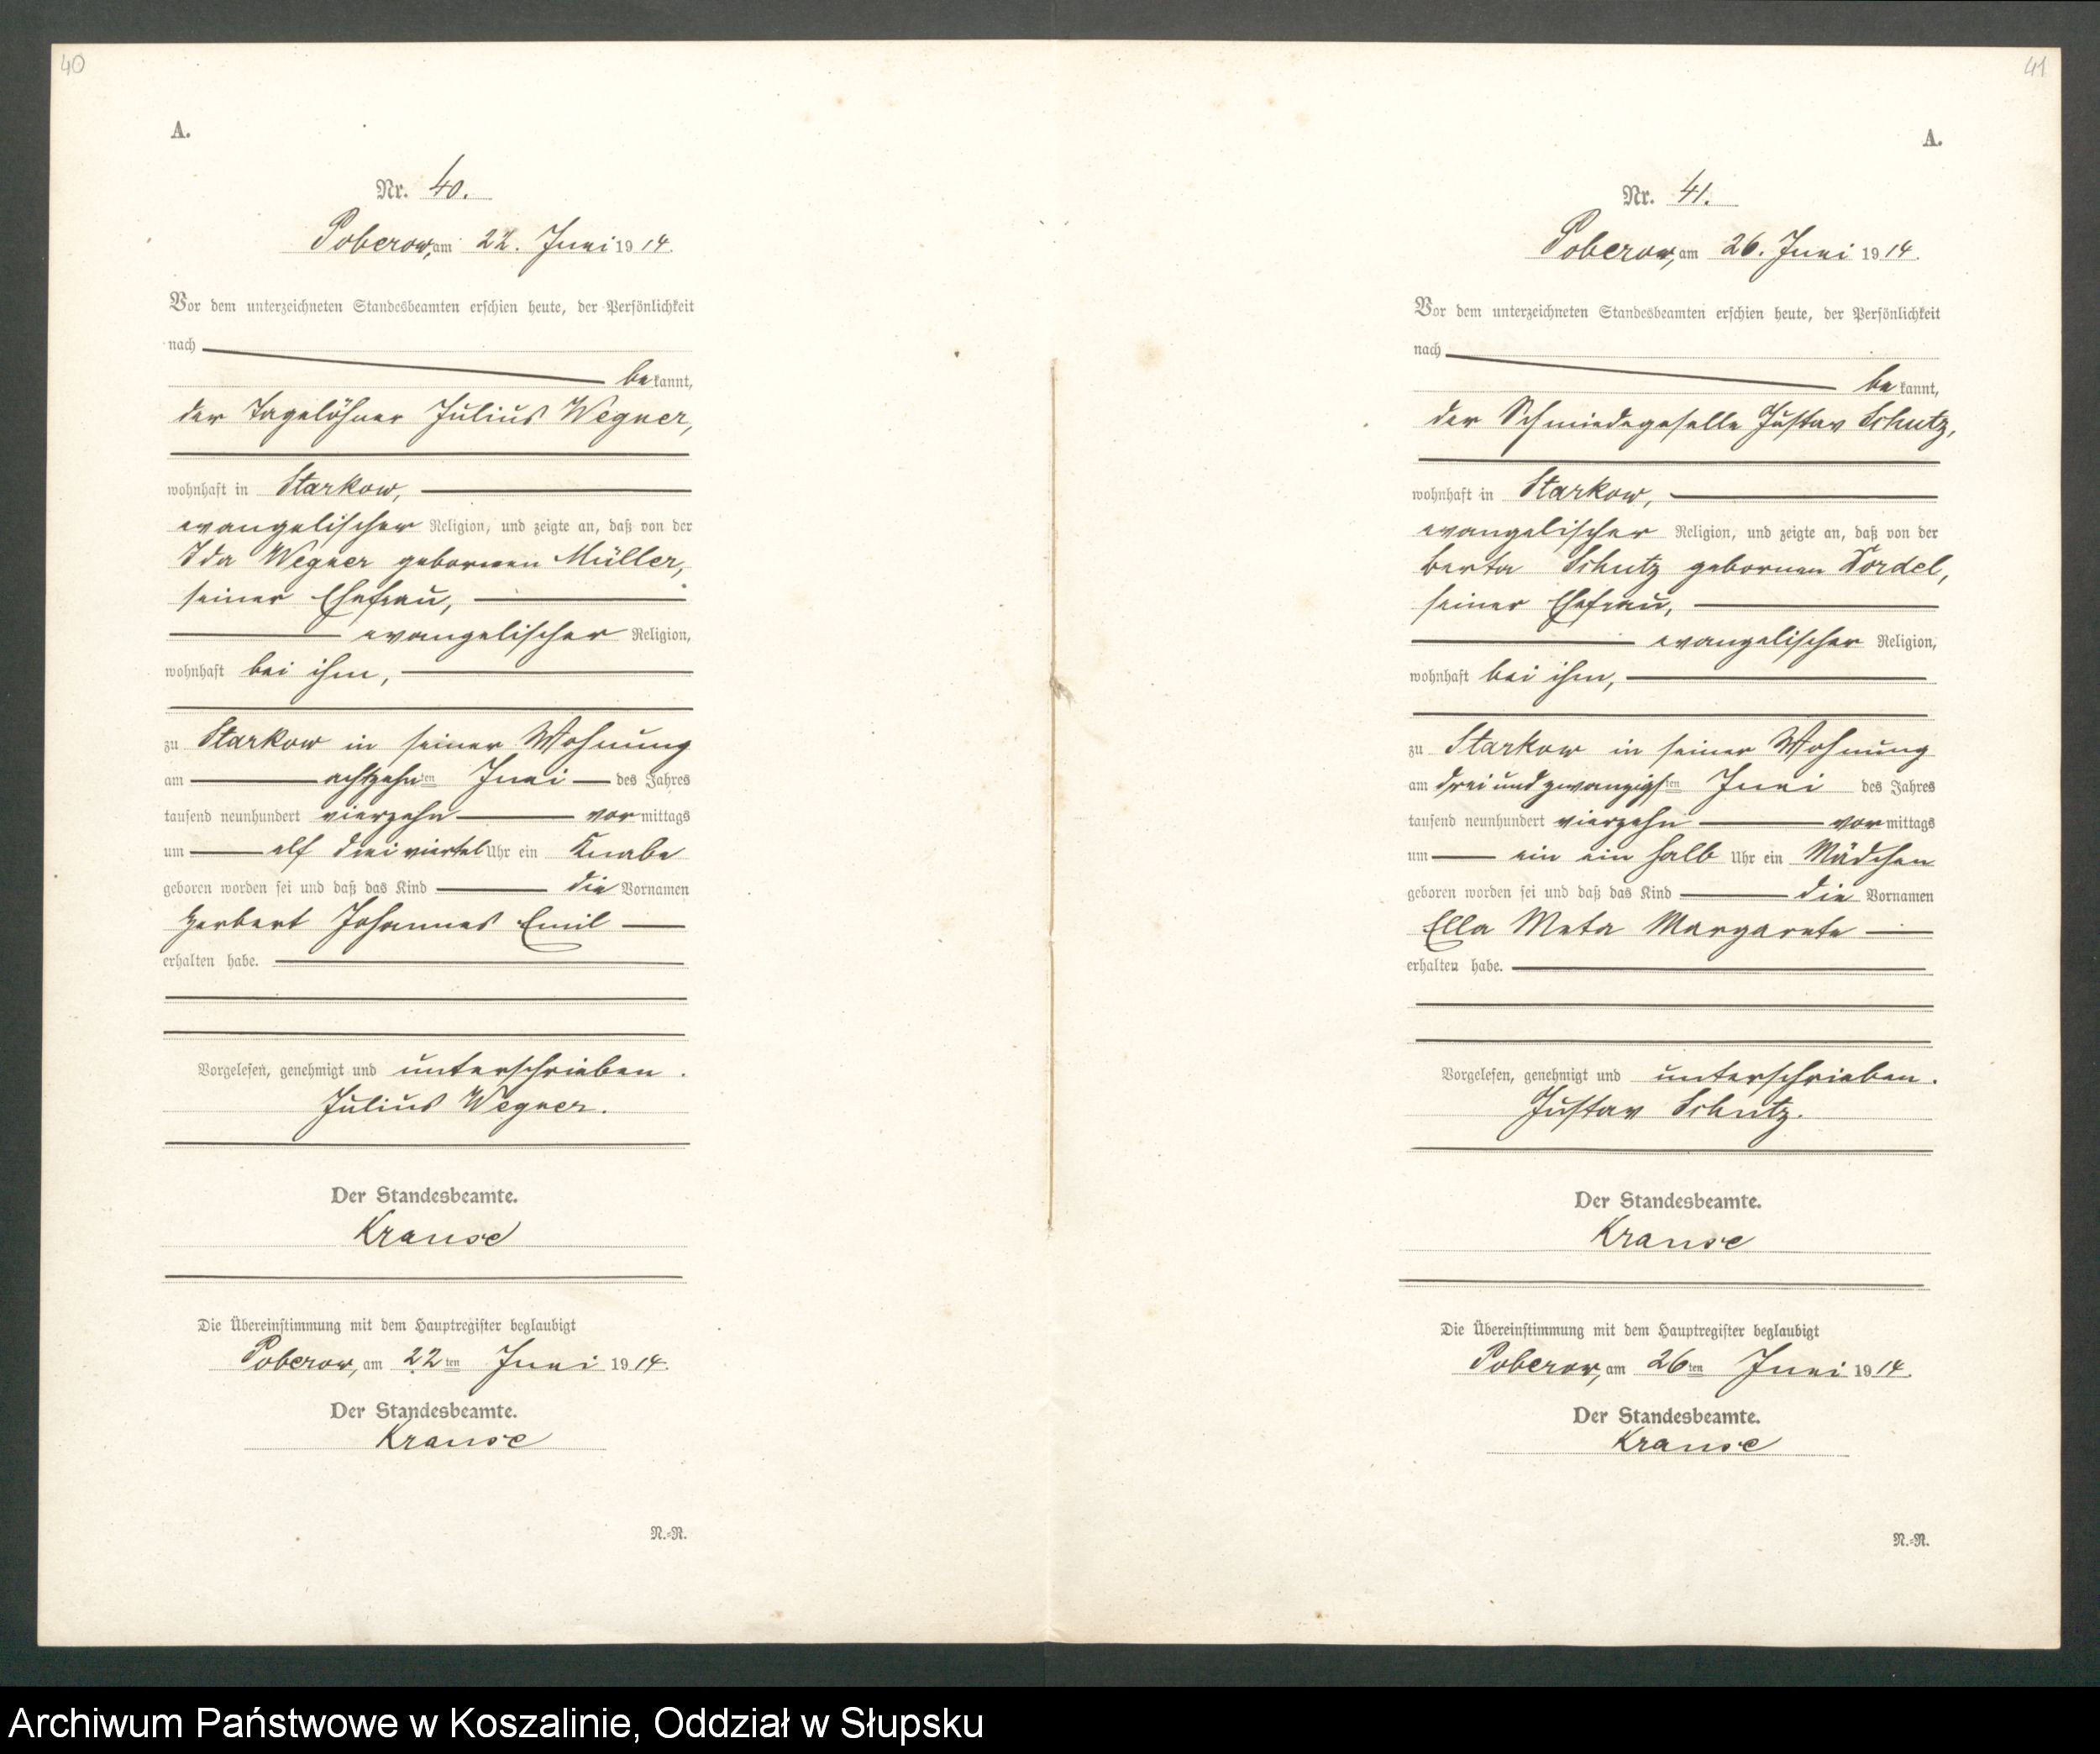 40
A.
Nr. 40.
Poberow, am 22. Juni 1914.
Vor dem unterzeichneten Standesbeamten erschien heute, der Persönlichkeit
nach
bekannt,
der Tagelöhner Julius Wegner,
wohnhaft in Starkow,
evangelischer Religion, und zeigte an, daß von der
Ida Wegner gebornen Müller,
seiner Ehefrau,
evangelischer Religion,
wohnhaft bei ihm,
zu Starkow in seiner Wohnung
am achtzehnten Juni des Jahres
tausend neunhundert vierzehn vormittags
um elf dreiviertel Uhr ein Knabe
geboren worden sei und daß das Kind die Vornamen
Herbert Johannes Emil
erhalten habe.
Vorgelesen, genehmigt und unterschrieben.
Julius Wegner.
Der Standesbeamte.
Krause
Die Übereinstimmung mit dem Hauptregister beglaubigt
Poberow, am 22ten Juni 1914.
Der Standesbeamte.
Krause
N.=R.
41
A.
Nr. 41.
Poberow, am 26. Juni 1914.
Vor dem unterzeichneten Standesbeamten erschien heute, der Persönlichkeit
nach
bekannt,
der Schmiedegeselle Gustav Schutz,
wohnhaft in Starkow,
evangelischer Religion, und zeigte an, daß von der
Berta Schutz gebornen Dordel,
seiner Ehefrau,
evangelischer Religion,
wohnhaft bei ihm,
zu Starkow in seiner Wohnung
am dreiundzwanzigsten Juni des Jahres
tausend neunhundert vierzehn vormittags
um ein ein halb Uhr ein Mädchen
geboren worden sei und daß das Kind die Vornamen
Ella Meta Margarete
erhalten habe.
Vorgelesen, genehmigt und unterschrieben.
Gustav Schutz.
Der Standesbeamte.
Krause
Die Übereinstimmung mit dem Hauptregister beglaubigt
Poberow, am 26ten Juni 1914.
Der Standesbeamte.
Krause
N.=R.
Archiwum Państwowe w Koszalinie, Oddział w Słupsku